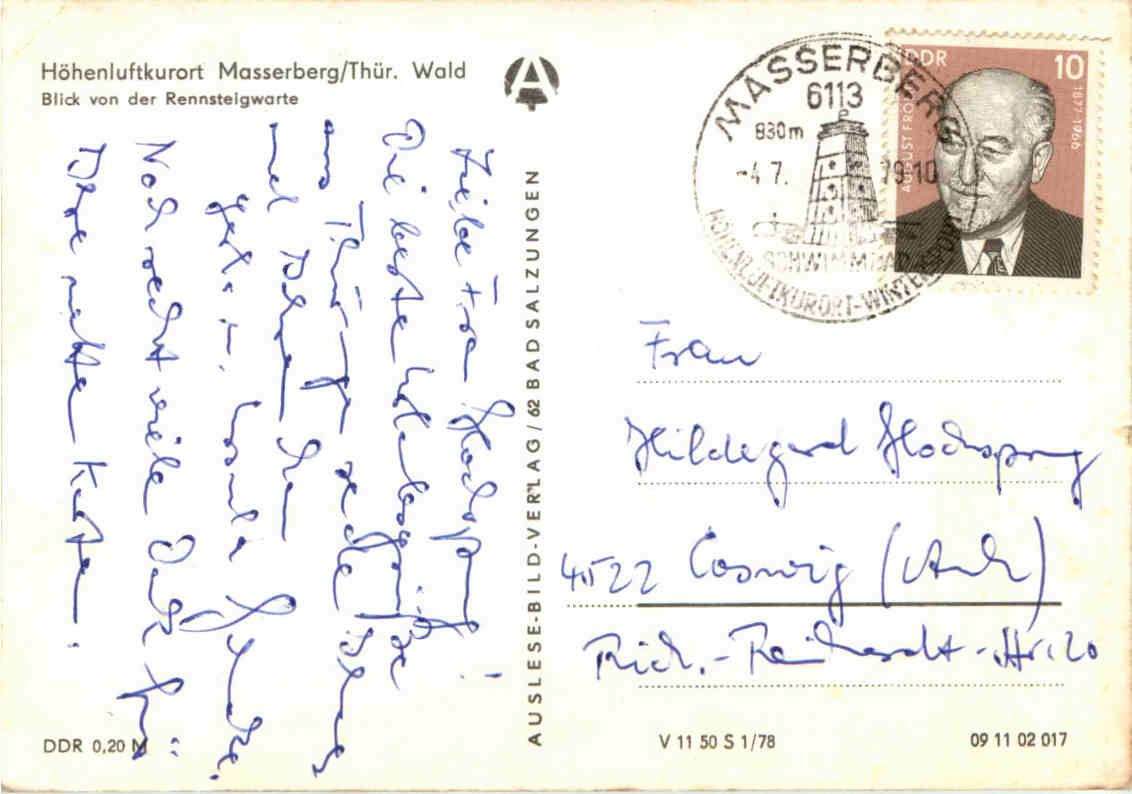 Höhenluftkurort Masserberg/Thür. Wald
Blick von der Rennsteigwarte
Liebe Frau Hochsprung!
Die beste Urlaubsgrüße
aus Thüringen sendet Ihnen
und Ihrem
Gesula
Noch recht vielen Dank für
Ihre nette Karte.
DDR 0,20 M
AUSLESE-BILD-VERLAG / 62 BAD SALZUNGEN
MASSERBERG
6113
830m
-4.7. 79-10
SCHWIMMBAD
HÖHENLUFTKURORT-WINTERSPORT
DDR 10
AUGUST FRÖ
1877-1966
Frau
Hildegard Hochsprung
4522 Coswig (Anh)
Rich.-Reinhardt-Str. 20
V 11 50 S 1/78
09 11 02 017